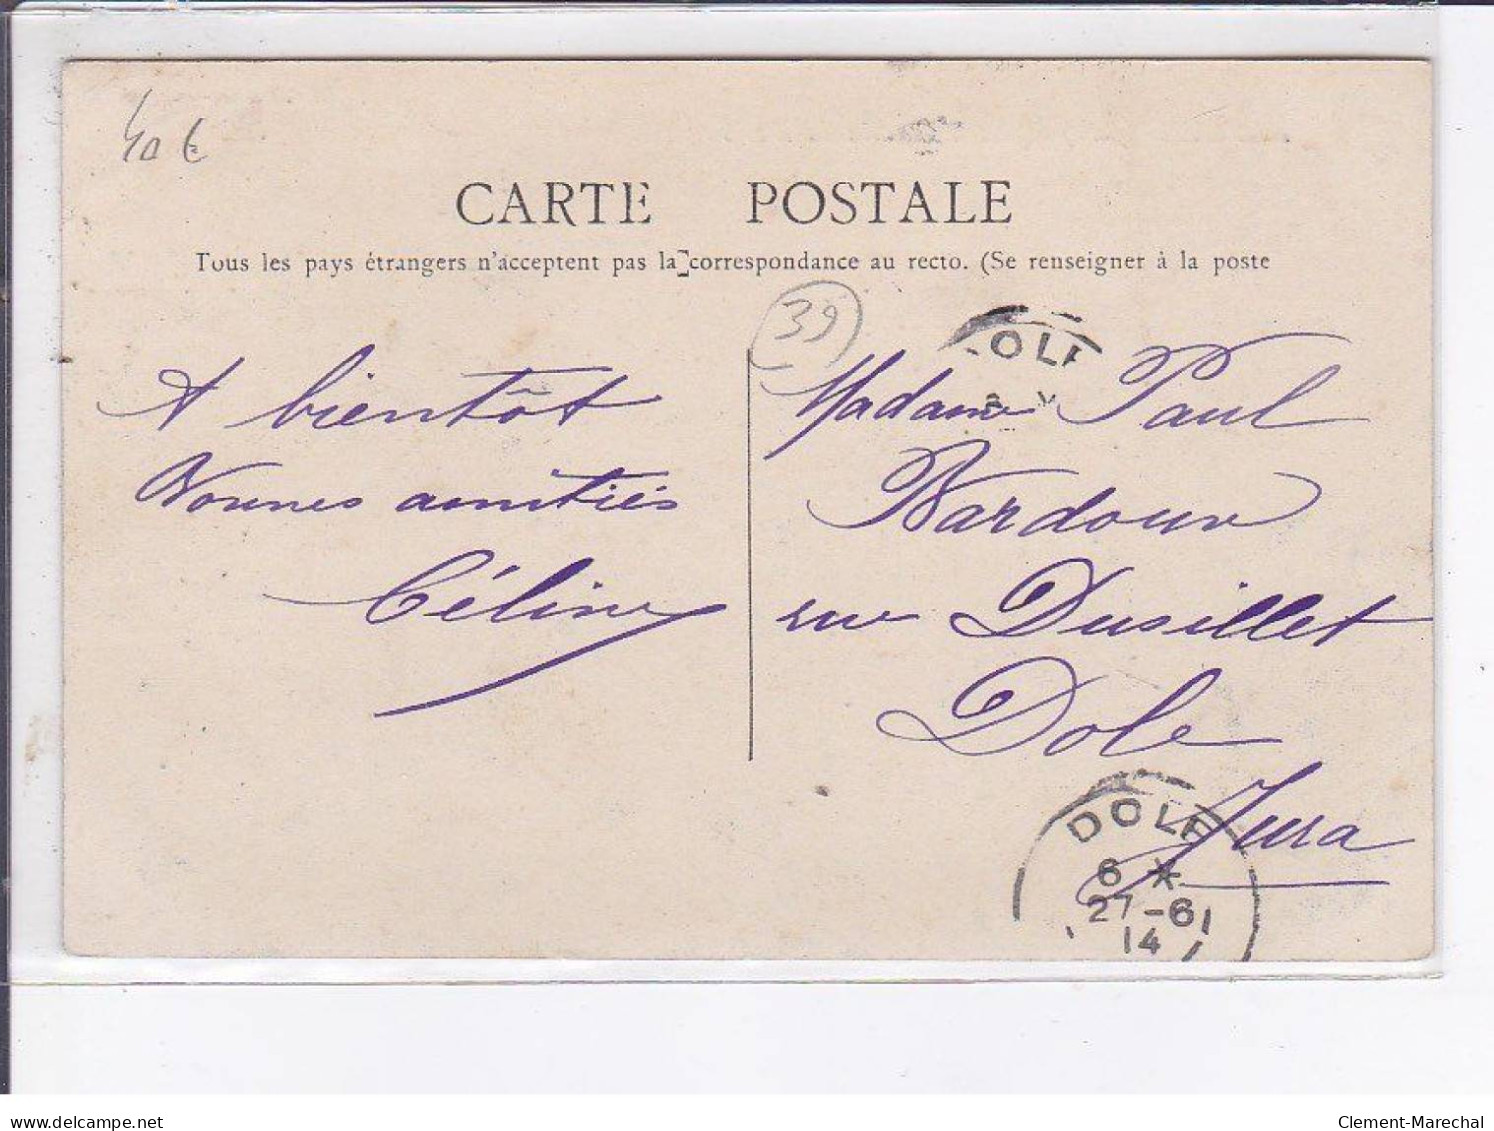 40 €
CARTE POSTALE
Tous les pays étrangers n'acceptent pas la correspondance au recto. (Se renseigner à la poste
39
A bientôt
Bonnes amitiés
Céline
Madame Paul
Nardoux
rue Dusillet
Dole
Jura
DOLE
DOLE
6 *
27-6
14
www.delcampe.net
Clement-Marechal